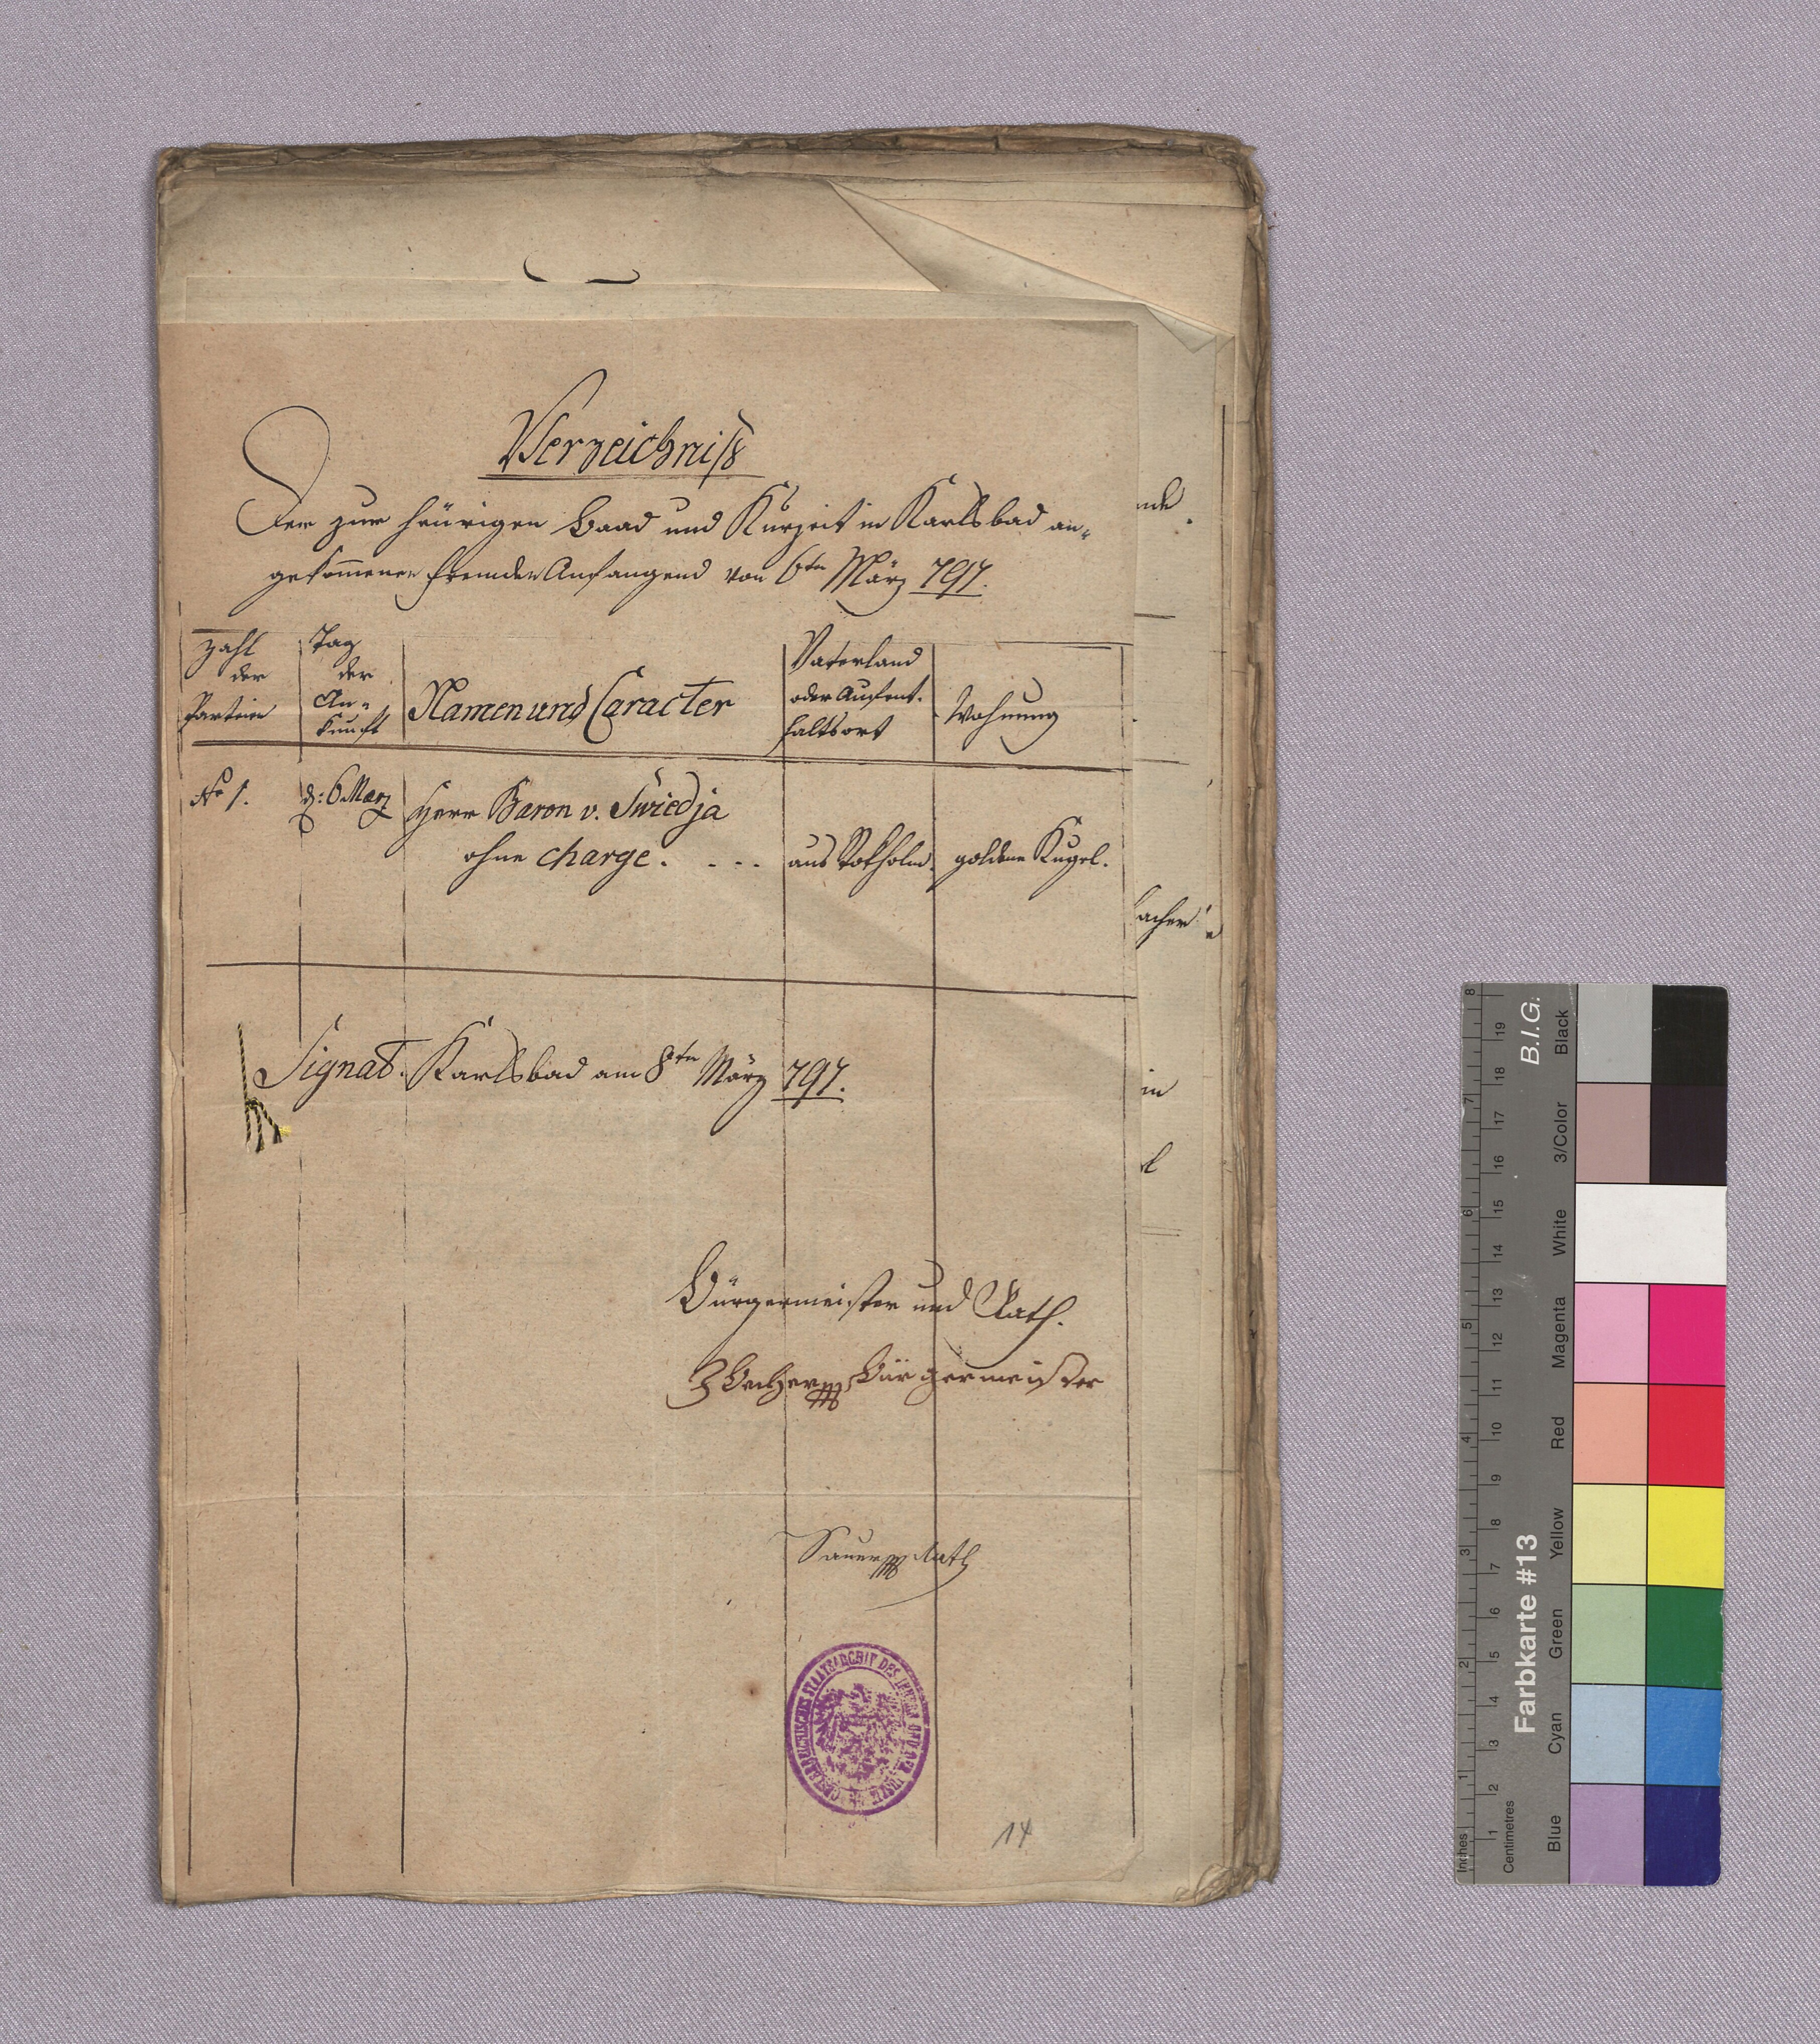 Verzeichniß
Der zur heürigen Baad und Kurzeit in Karlsbad an-
gekom̅enen Fremden Anfangend von 6ten März 797.
Zahl der Partein
Tag der An-kunft
Namen und Caracter
Vaterland oder Aufent-haltsort
Wohnung
No 1.
d: 6 Marz
Herr Baron v. Swiedja
ohne charge. . . .
aus Stokholm.
goldene Kugel.
Signat. Karlsbad am 8ten März 797.
Bürgermeister und Rath.
Bürgermeister
Sauer Rath
14
Farbkarte #13
B.I.G.
Inches
Centimetres
Blue
Cyan
Green
Yellow
Red
Magenta
White
3/Color
Black
1 2 3 4 5 6 7 8
1 2 3 4 5 6 7 8 9 10 11 12 13 14 15 16 17 18 19